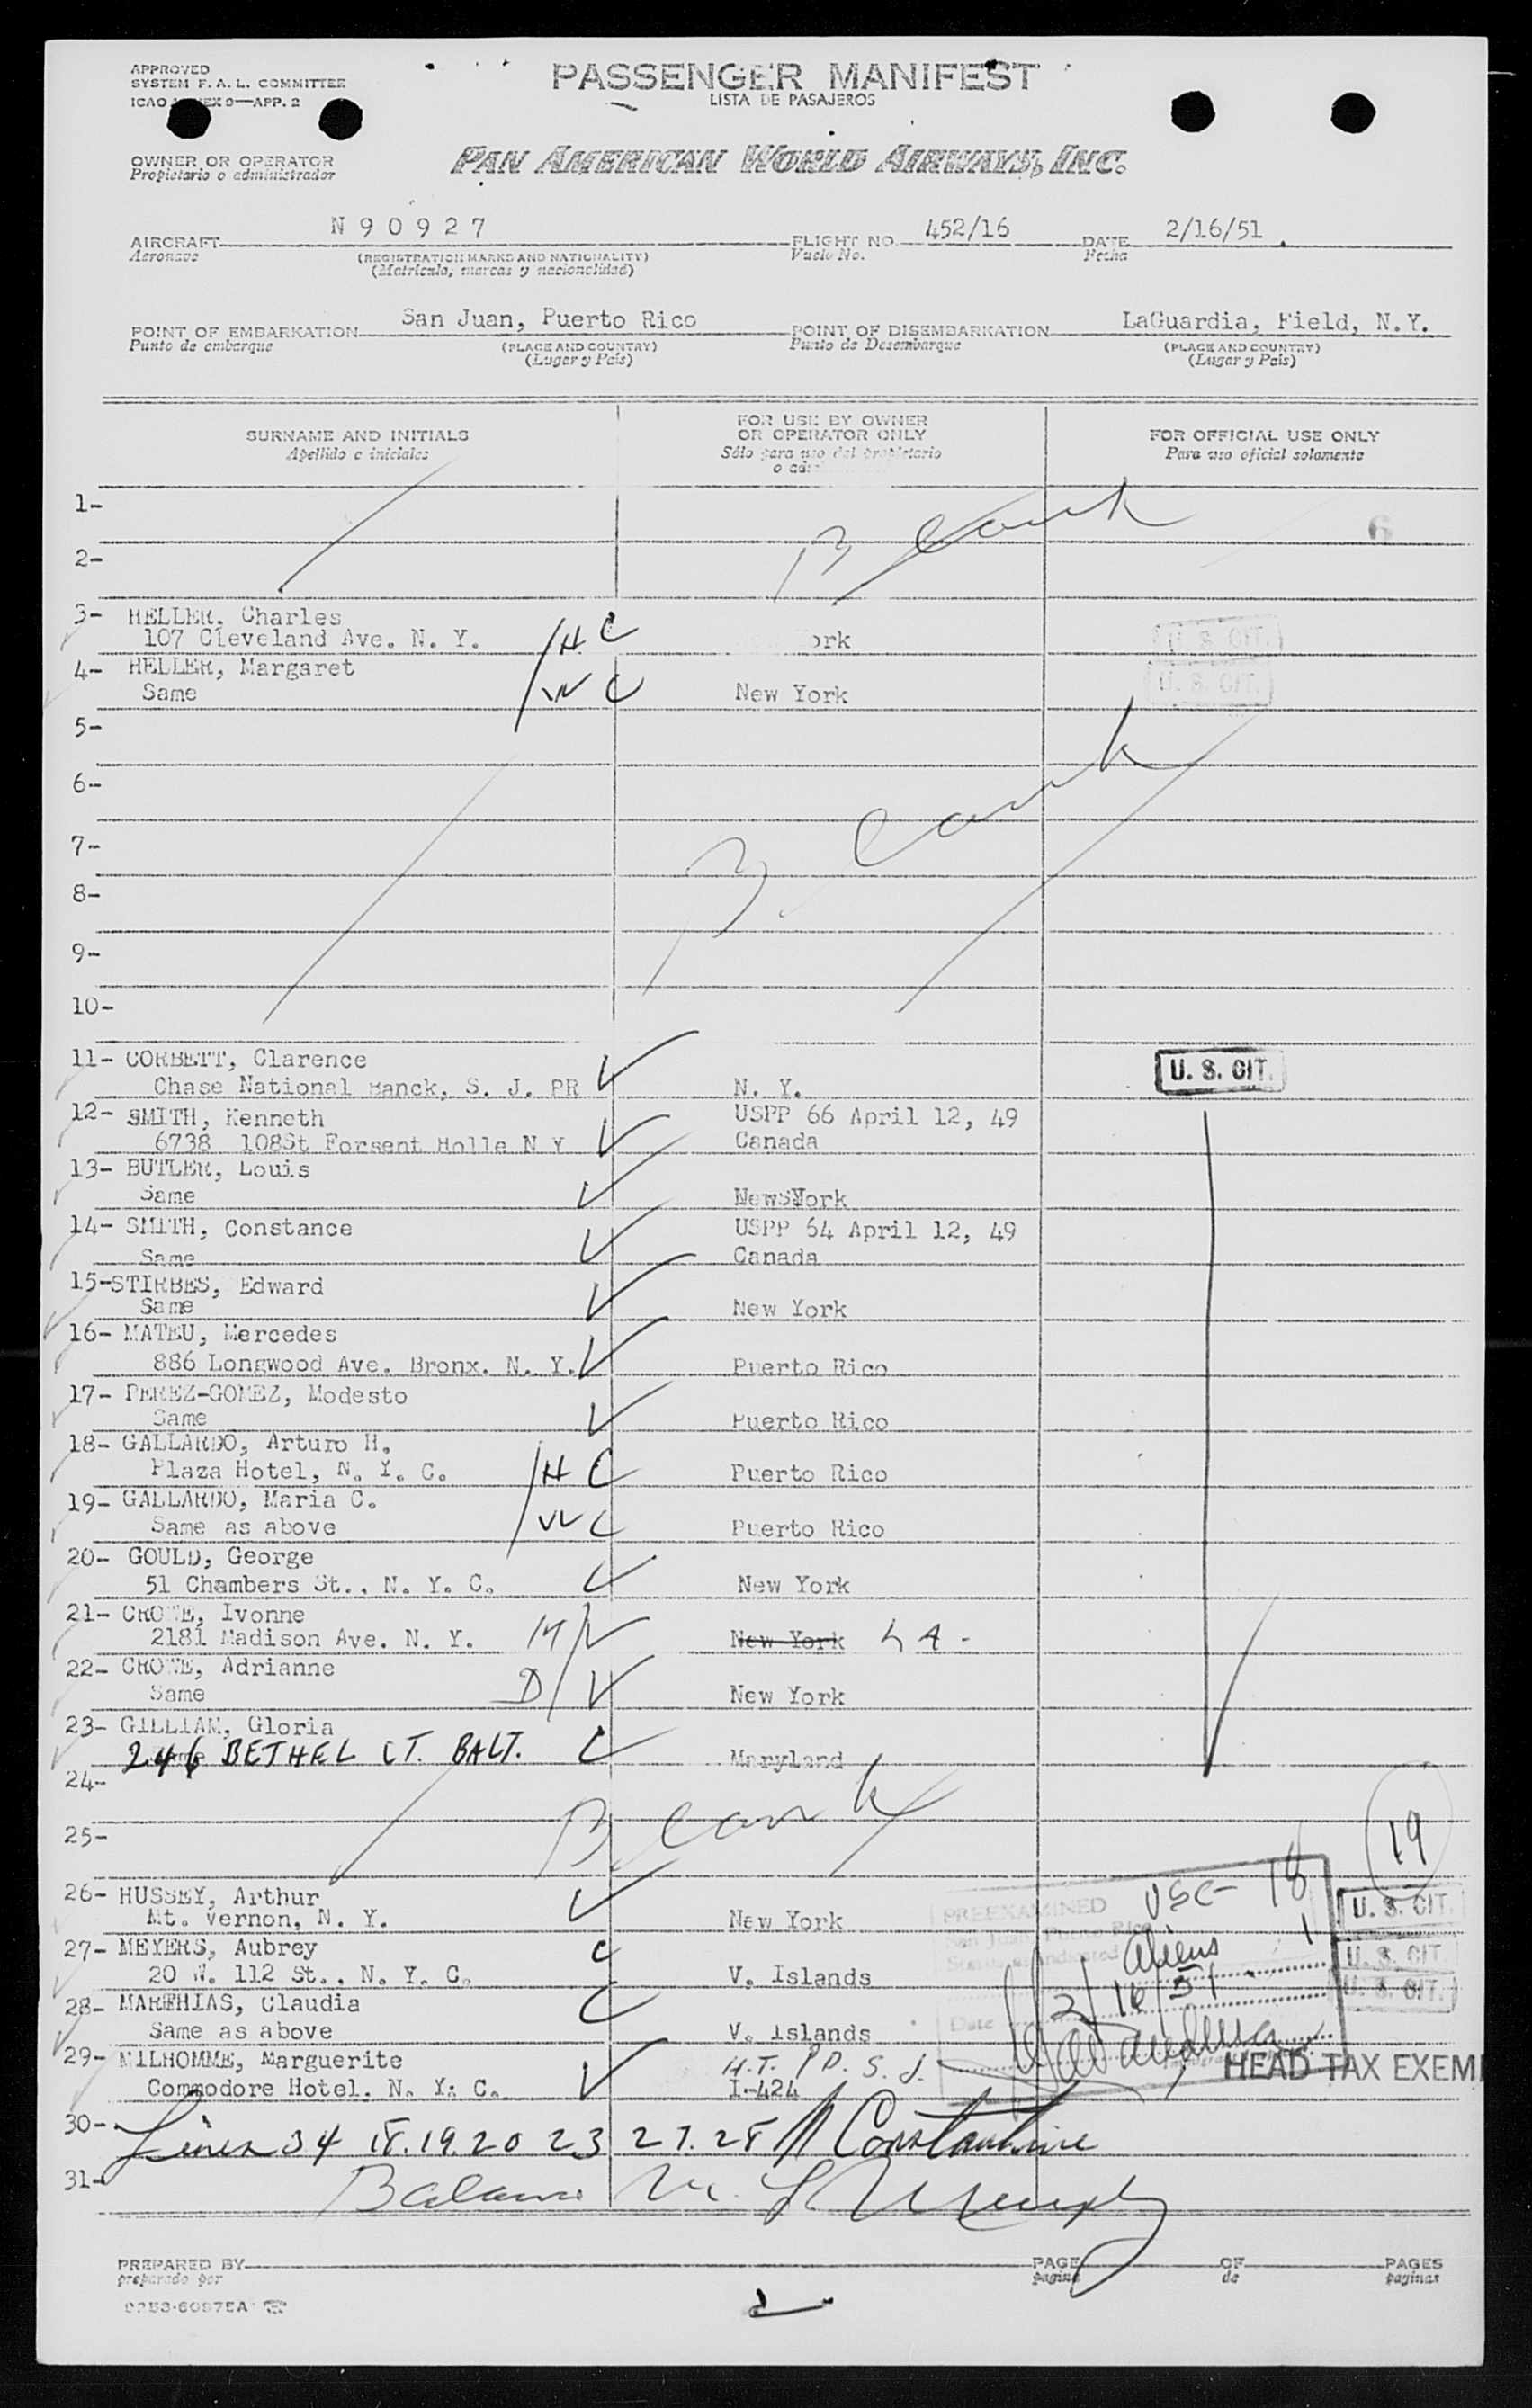 APPROVED
SYSTEM F. A. L. COMMITTEE
ICAO EX 9—APP. 2
PASSENGER MANIFEST
LISTA DE PASAJEROS
OWNER OR OPERATOR
Propietario o administrador
PAN AMERICAN WORLD AIRWAYS, INC.
AIRCRAFT N 9 0 9 2 7 FLIGHT NO. 452/16 DATE 2/16/51
Aeronave (REGISTRATION MARKS AND NATIONALITY) Vuelo No. Fecha
(Matrícula, marcas y nacionalidad)
POINT OF EMBARKATION San Juan, Puerto Rico POINT OF DISEMBARKATION LaGuardia, Field, N.Y.
Punto de embarque (PLACE AND COUNTRY) Punto de Desembarque (PLACE AND COUNTRY)
(Lugar y País) (Lugar y País)
SURNAME AND INITIALS FOR USE BY OWNER OR OPERATOR ONLY FOR OFFICIAL USE ONLY
Apellido e iniciales Sólo para uso del propietario Para uso oficial solamente
1- Blank 6
2-
3- HELLER, Charles
107 Cleveland Ave. N. Y. H C ork U. S. CIT.
4- HELLER, Margaret
Same W C New York U. S. CIT.
5-
6-
7- Blank
8-
9-
10-
11- CORBETT, Clarence
Chase National Banck, S. J. PR N. Y. U. S. CIT.
12- SMITH, Kenneth USPP 66 April 12, 49
6738 108St Forsent Holle N Y Canada
13- BUTLER, Louis
Same New York
14- SMITH, Constance USPP 64 April 12, 49
Same Canada
15-STIRBES, Edward
Same New York
16- MATEU, Mercedes
886 Longwood Ave. Bronx. N. Y. Puerto Rico
17- PEREZ-GOMEZ, Modesto
Same Puerto Rico
18- GALLARDO, Arturo H.
Plaza Hotel, N. Y. C. H C Puerto Rico
19- GALLARDO, Maria C.
Same as above W C Puerto Rico
20- GOULD, George
51 Chambers St., N. Y. C. New York
21- CROWE, Ivonne
2181 Madison Ave. N. Y. M New York
22- CROWE, Adrianne
Same D New York
23- GILLIAM, Gloria
246 BETHEL CT. BALT. C Maryland
24- Blank
25- 19
26- HUSSEY, Arthur PREEXAMINED USC- 18
Mt. Vernon, N. Y. New York San Juan, Puerto Rico U. S. CIT.
27- MEYERS, Aubrey C Aliens 1
20 W. 112 St., N. Y. C. V. Islands U. S. CIT.
28- MARTHIAS, Claudia C U. S. CIT.
Same as above V. Islands Date 2/16/51
29- MILHOMME, Marguerite H.T. PD. S. J.
Commodore Hotel. N. Y. C. I-424 HEAD TAX EXEM
30- Lines 3 4 18.19.20 23 27.28 Constantine
31- Balance M. L. Murphy
PREPARED BY PAGE OF PAGES
preparado por pagina de paginas
2